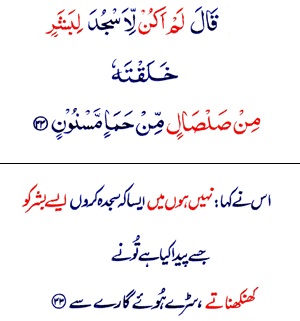 قَالَ لَمْ اَكُنْ لِّاَسْجُدَ لِبَشَرٍ
خَلَقْتَهٗ
مِنْ صَلْصَالٍ مِّنْ حَمَاٍ مَّسْنُوْنٍ ﴿۳۳﴾
اس نے کہا: نہیں ہوں میں ایسا کہ سجدہ کروں ایسے بشر کو
جسے پیدا کیا ہے تُو نے
کھنکھناتے، سڑے ہُوئے گارے سے ﴿۳۳﴾